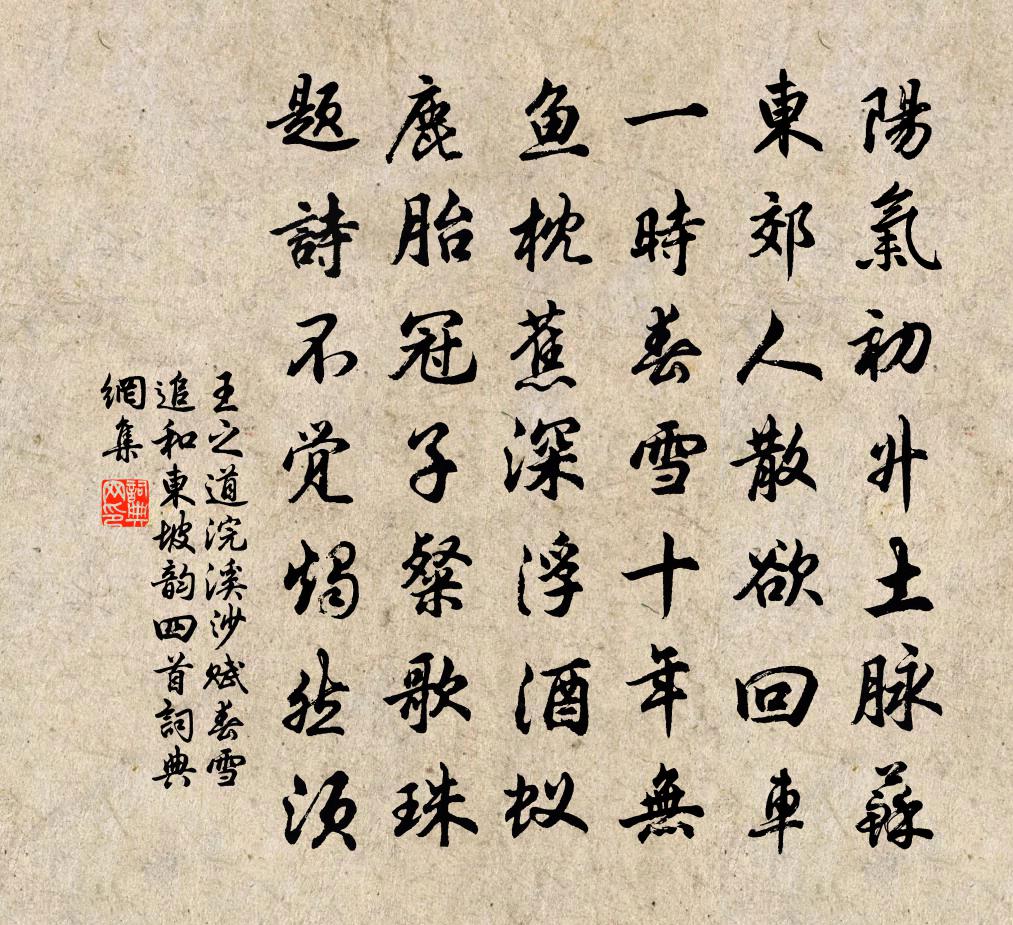 陽氣初升土脉蘇
東郊人散欲回車
一時春雪十年無
鱼枕蕉深浮酒蚁
鹿胎冠子粲歌珠
题詩不覚燭然须
王之道浣溪沙賦春雪
追和東坡韵四首詞典
網集
詞典网印